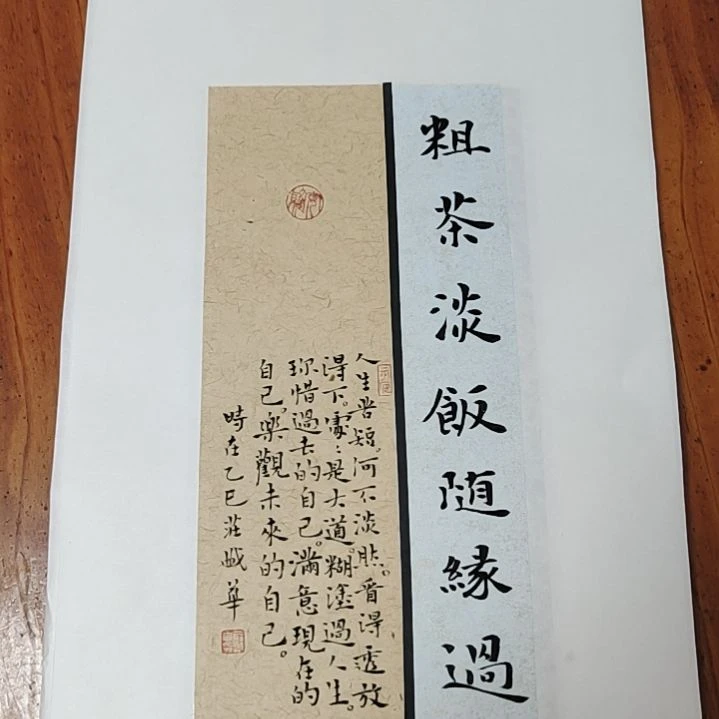 粗茶淡飯随緣過
人生苦短。河不淡肰。看得透放
得下。處：是大道。糊塗過人生。
珎惜過去的自己。滿意現在的
自己。樂觀未來的自己。
時在乙巳莊華